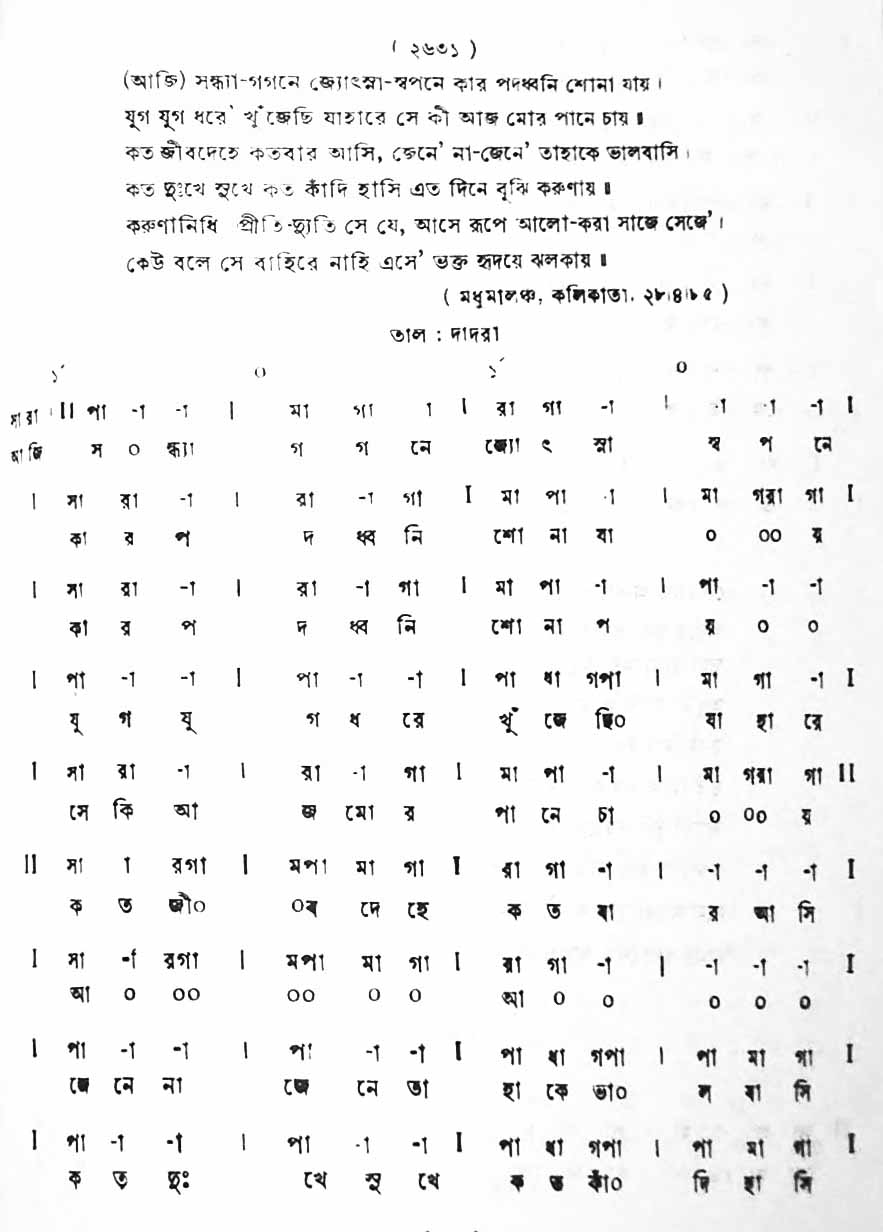 ( ২৬৩১ )
(আজি) সন্ধ্যা-গগনে জ্যোৎস্না-স্বপনে কার পদধ্বনি শোনা যায় ।
যুগ যুগ ধরে' খুঁজেছি যাহারে সে কী আজ মোর পানে চায় ॥
কত জীবদেহে কতবার আসি, জেনে' না-জেনে' তাহাকে ভালবাসি ।
কত দুঃখে সুখে কত কাঁদি হাসি এত দিনে বুঝি করুণায় ॥
করুণানিধি প্রীতি-দ্যুতি সে যে, আসে রূপে আলো-করা সাজে সেজে' ।
কেউ বলে সে বাহিরে নাহি এসে' ভক্ত হৃদয়ে ঝলকায় ॥
( মধুমালঞ্চ, কলিকাতা, ২৮।৪।৮৫ )
তাল : দাদরা
১´ ০ ১´ ০
সা রা II পা -া -া | মা গা া I রা গা -া | -া -া -া I
আজি স ০ ন্ধ্যা গ গ নে জ্যো ৎ স্না স্ব প নে
I সা রা -া | রা -া গা I মা পা -া | মা গরা গা I
কা র প দ ধ্ব নি শো না যা ০ ০০ য়
I সা রা -া | রা -া গা I মা পা -া | পা -া -া
কা র প দ ধ্ব নি শো না প য় ০ ০
I পা -া -া | পা -া -া I পা ধা গপা | মা গা -া I
যু গ যু গ ধ রে খুঁ জে ছি০ যা হা রে
I সা রা -া | রা -া গা I মা পা -া | মা গরা গা II
সে কি আ জ মো র পা নে চা ০ ০০ য়
II সা া রগা | মপা মা গা I রা গা -া | -া -া -া I
ক ত জী০ ০ব দে হে ক ত বা র আ সি
I সা -া রগা | মপা মা গা I রা গা -া | -া -া -া I
আ ০ ০০ ০০ ০ ০ আ ০ ০ ০ ০ ০
I পা -া -া | পা -া -া I পা ধা গপা | পা মা গা I
জে নে না জে নে তা হা কে ভা০ ল বা সি
I পা -া -া | পা -া -া I পা ধা গপা | পা মা গা I
ক ত দুঃ খে সু খে ক ত কাঁ০ দি হা সি